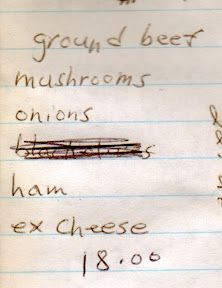 ground beef
mushrooms
onions
ham
ex cheese
18.00